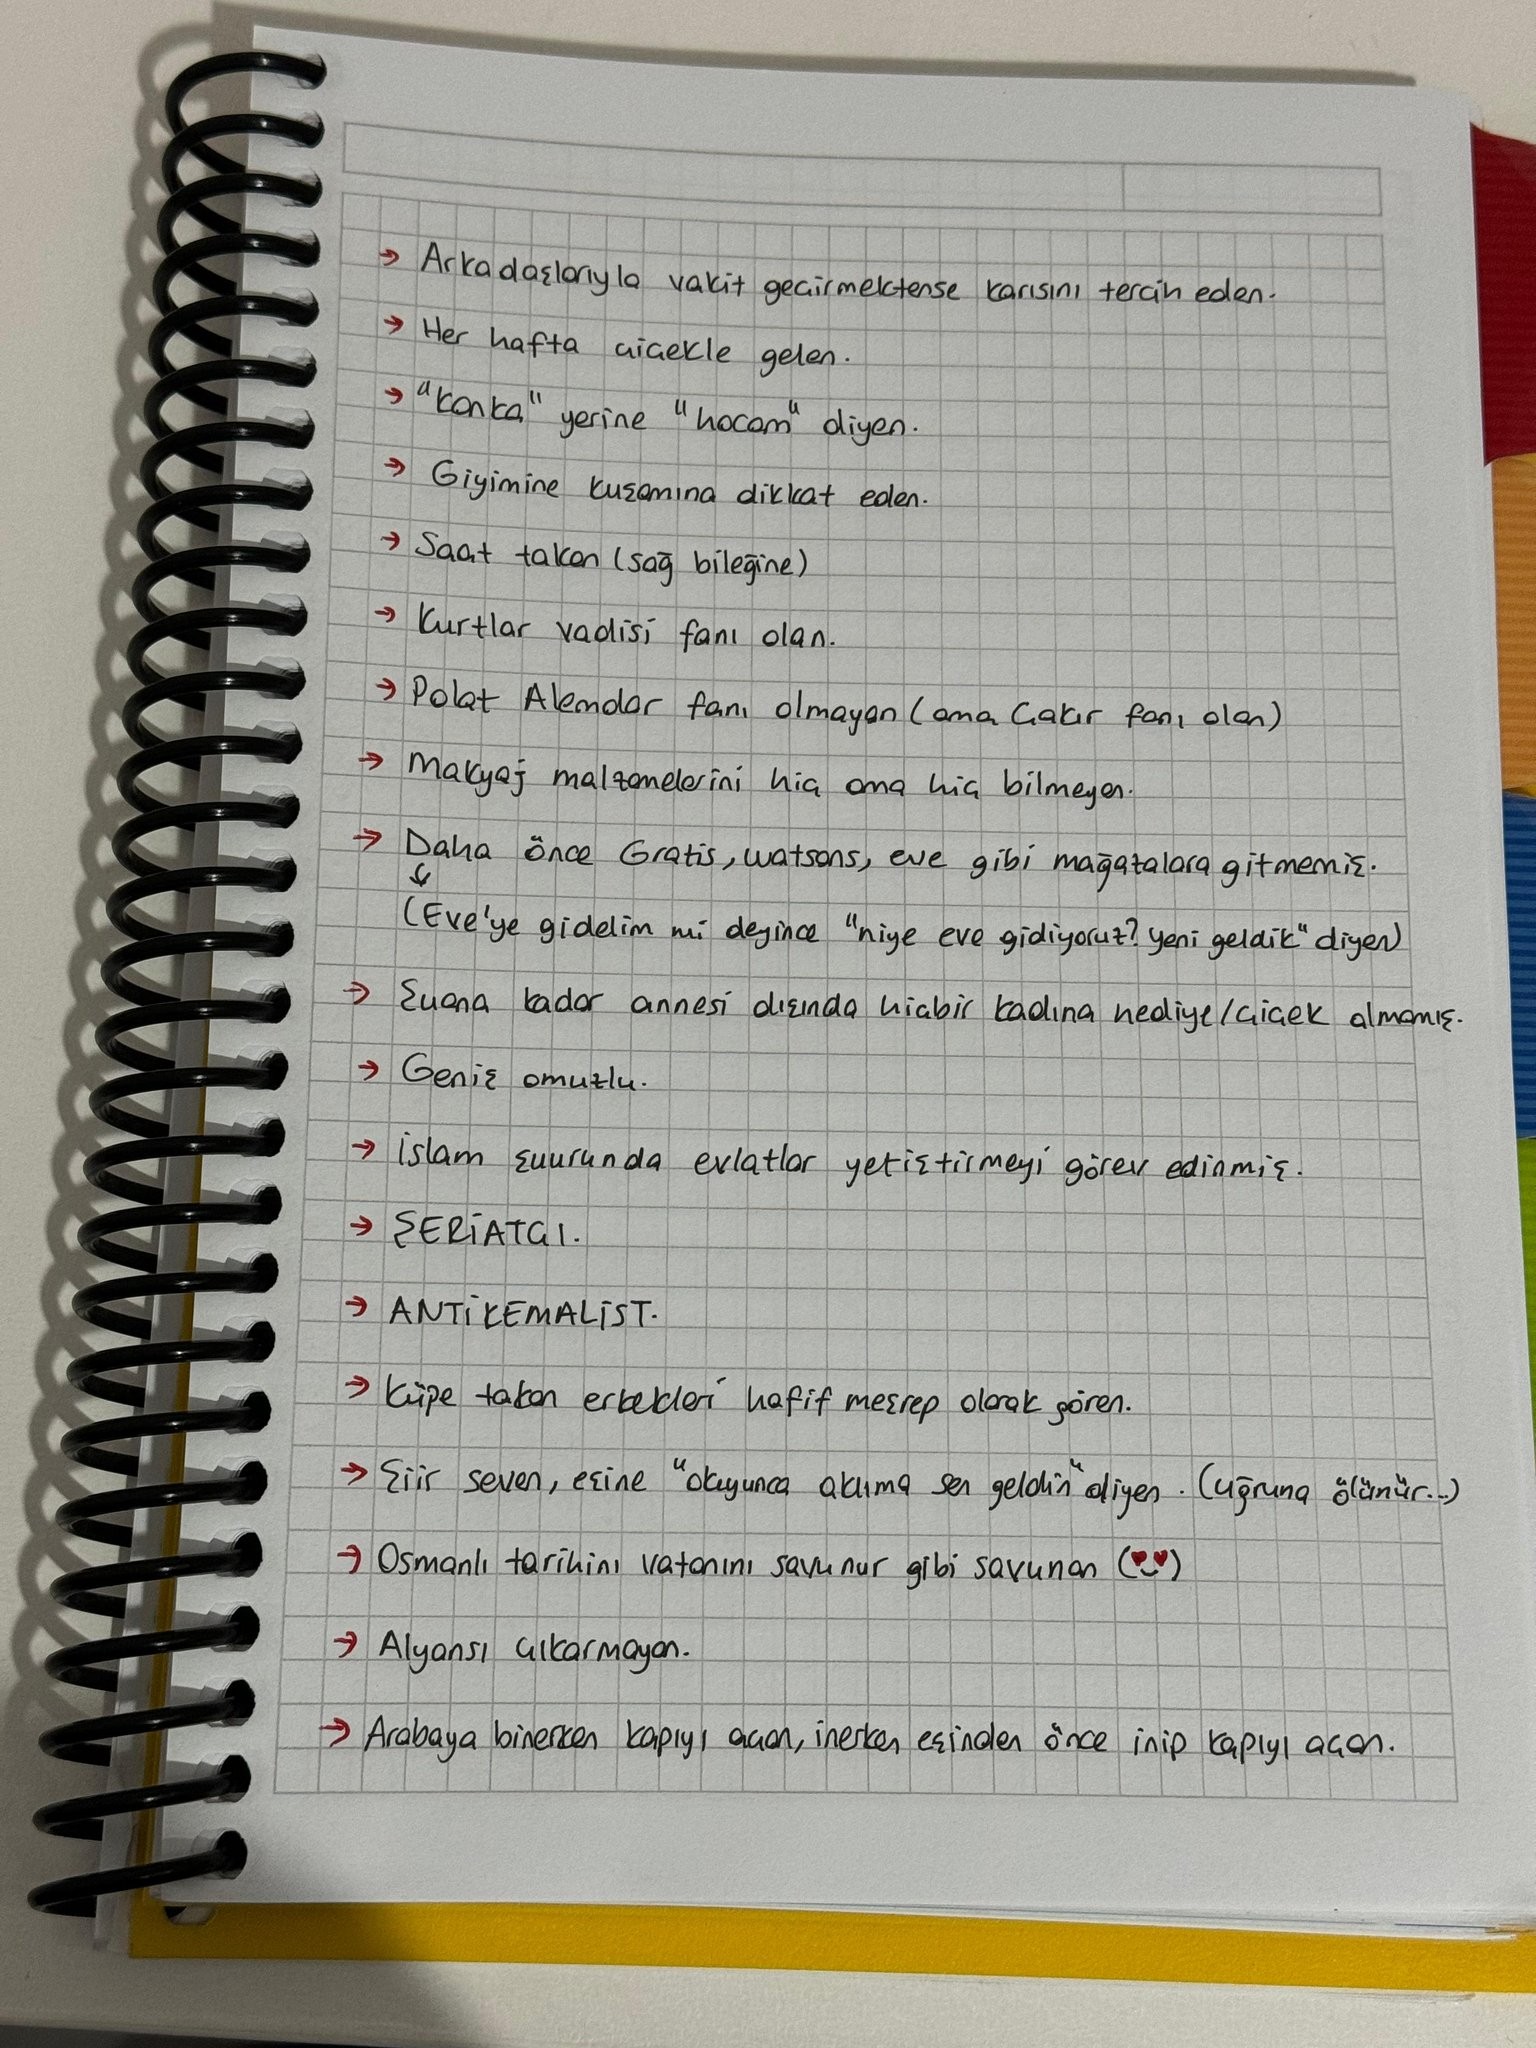 → Arkadaşlarıyla vakit geçirmektense karısını tercih eden.
→ Her hafta çiçekle gelen.
→ "kanka" yerine "hocam" diyen.
→ Giyimine kuşamına dikkat eden.
→ Saat takan (sağ bileğine)
→ Kurtlar vadisi fanı olan.
→ Polat Alemdar fanı olmayan (ama Çakır fanı olan)
→ Makyaj malzemelerini hiç ama hiç bilmeyen.
→ Daha önce Gratis, watsons, eve gibi mağazalara gitmemiş.
↓
(Eve'ye gidelim mi deyince "niye eve gidiyoruz? yeni geldik" diyen)
→ Şuana kadar annesi dışında hiçbir kadına hediye/çiçek almamış.
→ Geniş omuzlu.
→ islam şuurunda evlatlar yetiştirmeyi görev edinmiş.
→ ŞERİATÇI.
→ ANTİKEMALİST.
→ Küpe takan erkekleri hafif meşrep olarak gören.
→ Şiir seven, eşine "okuyunca aklıma sen geldin" diyen. (uğruna ölünür...)
→ Osmanlı tarihini vatanını savunur gibi savunan (😍)
→ Alyansı çıkarmayan.
→ Arabaya binerken kapıyı açan, inerken eşinden önce inip kapıyı açan.